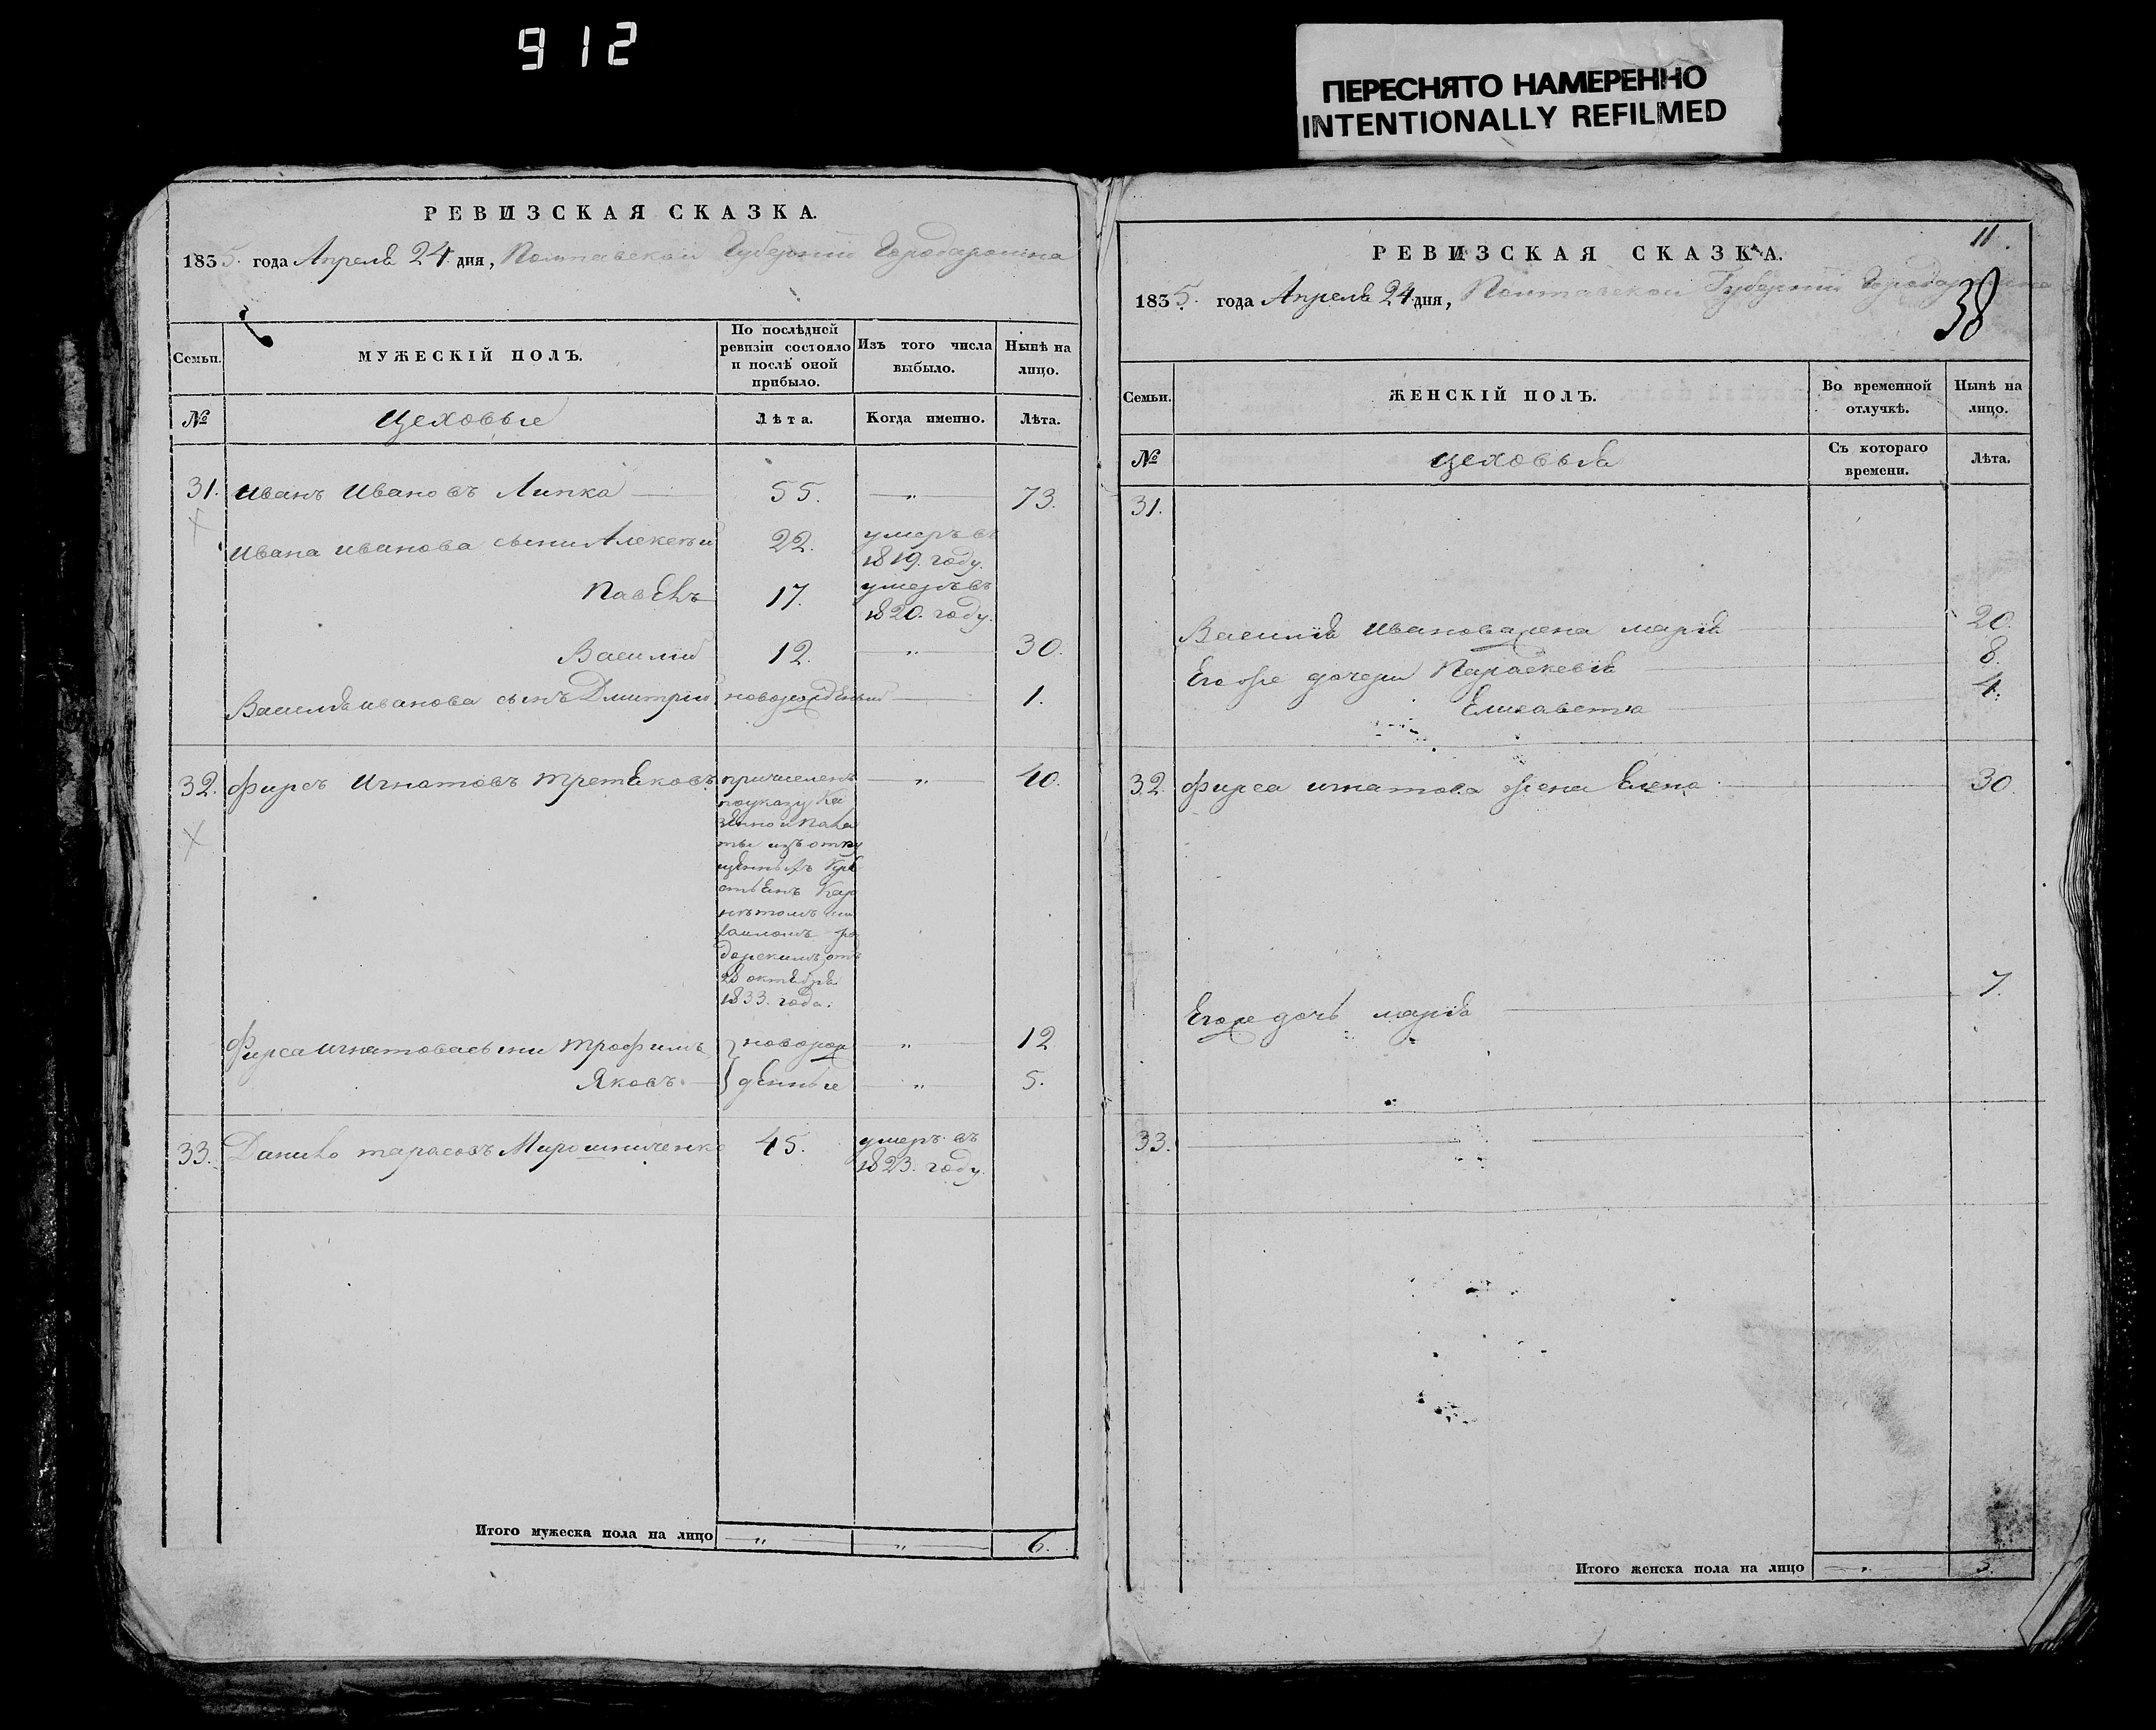 912
ПЕРЕСНЯТО НАМЕРЕННО
INTENTIONALLY REFILMED
РЕВИЗСКАЯ СКАЗКА.
1835. года Апреля 24 дня, Полтавской Губернии
Семьи.
МУЖЕСКІЙ ПОЛЪ.
По послѣдней
ревизіи состояло
и послѣ оной
прибыло.
Изъ того числа
выбыло.
Нынѣ на
лицо.
№
Цеховые
Лѣта.
Когда именно.
Лѣта.
31. Иванъ Ивановъ Липка 55. " 73.
Ивана Иванова сыни Алексѣй 22. умеръ въ
1819. году.
Павелъ 17. умеръ въ
1820. году.
Василий 12. " 30.
Василя Иванова сынъ Дмитрий новорожденый 1.
32. Фирсъ Игнатовъ Третяковъ причисленъ " 40.
по указу Ка
зенной пала
ты изъ отпу
щенныхъ Кре
стьянъ
28 октября
1833. года.
Фирса Игнатова сыни Трофимъ } новорож " 12
Яковъ } денные " 5.
33. Данило Тарасовъ Мирошниченко 45. умеръ въ
1823. году.
Итого мужеска пола на лицо " " 6.
11.
РЕВИЗСКАЯ СКАЗКА.
1835. года Апреля 24 дня, Полтавской Губернии
38
Семьи.
ЖЕНСКІЙ ПОЛЪ.
Во временной
отлучкѣ.
Нынѣ на
лицо.
№
Цеховыя
Съ котораго
времени.
Лѣта.
31.
Василия Иванова жена Мария 20.
Его же дочери Параскевия 8.
Елисавета 4.
32. Фирса Игнатова жена Елена 30.
Его же дочь Мария 7.
33.
Итого женска пола на лицо " 5.